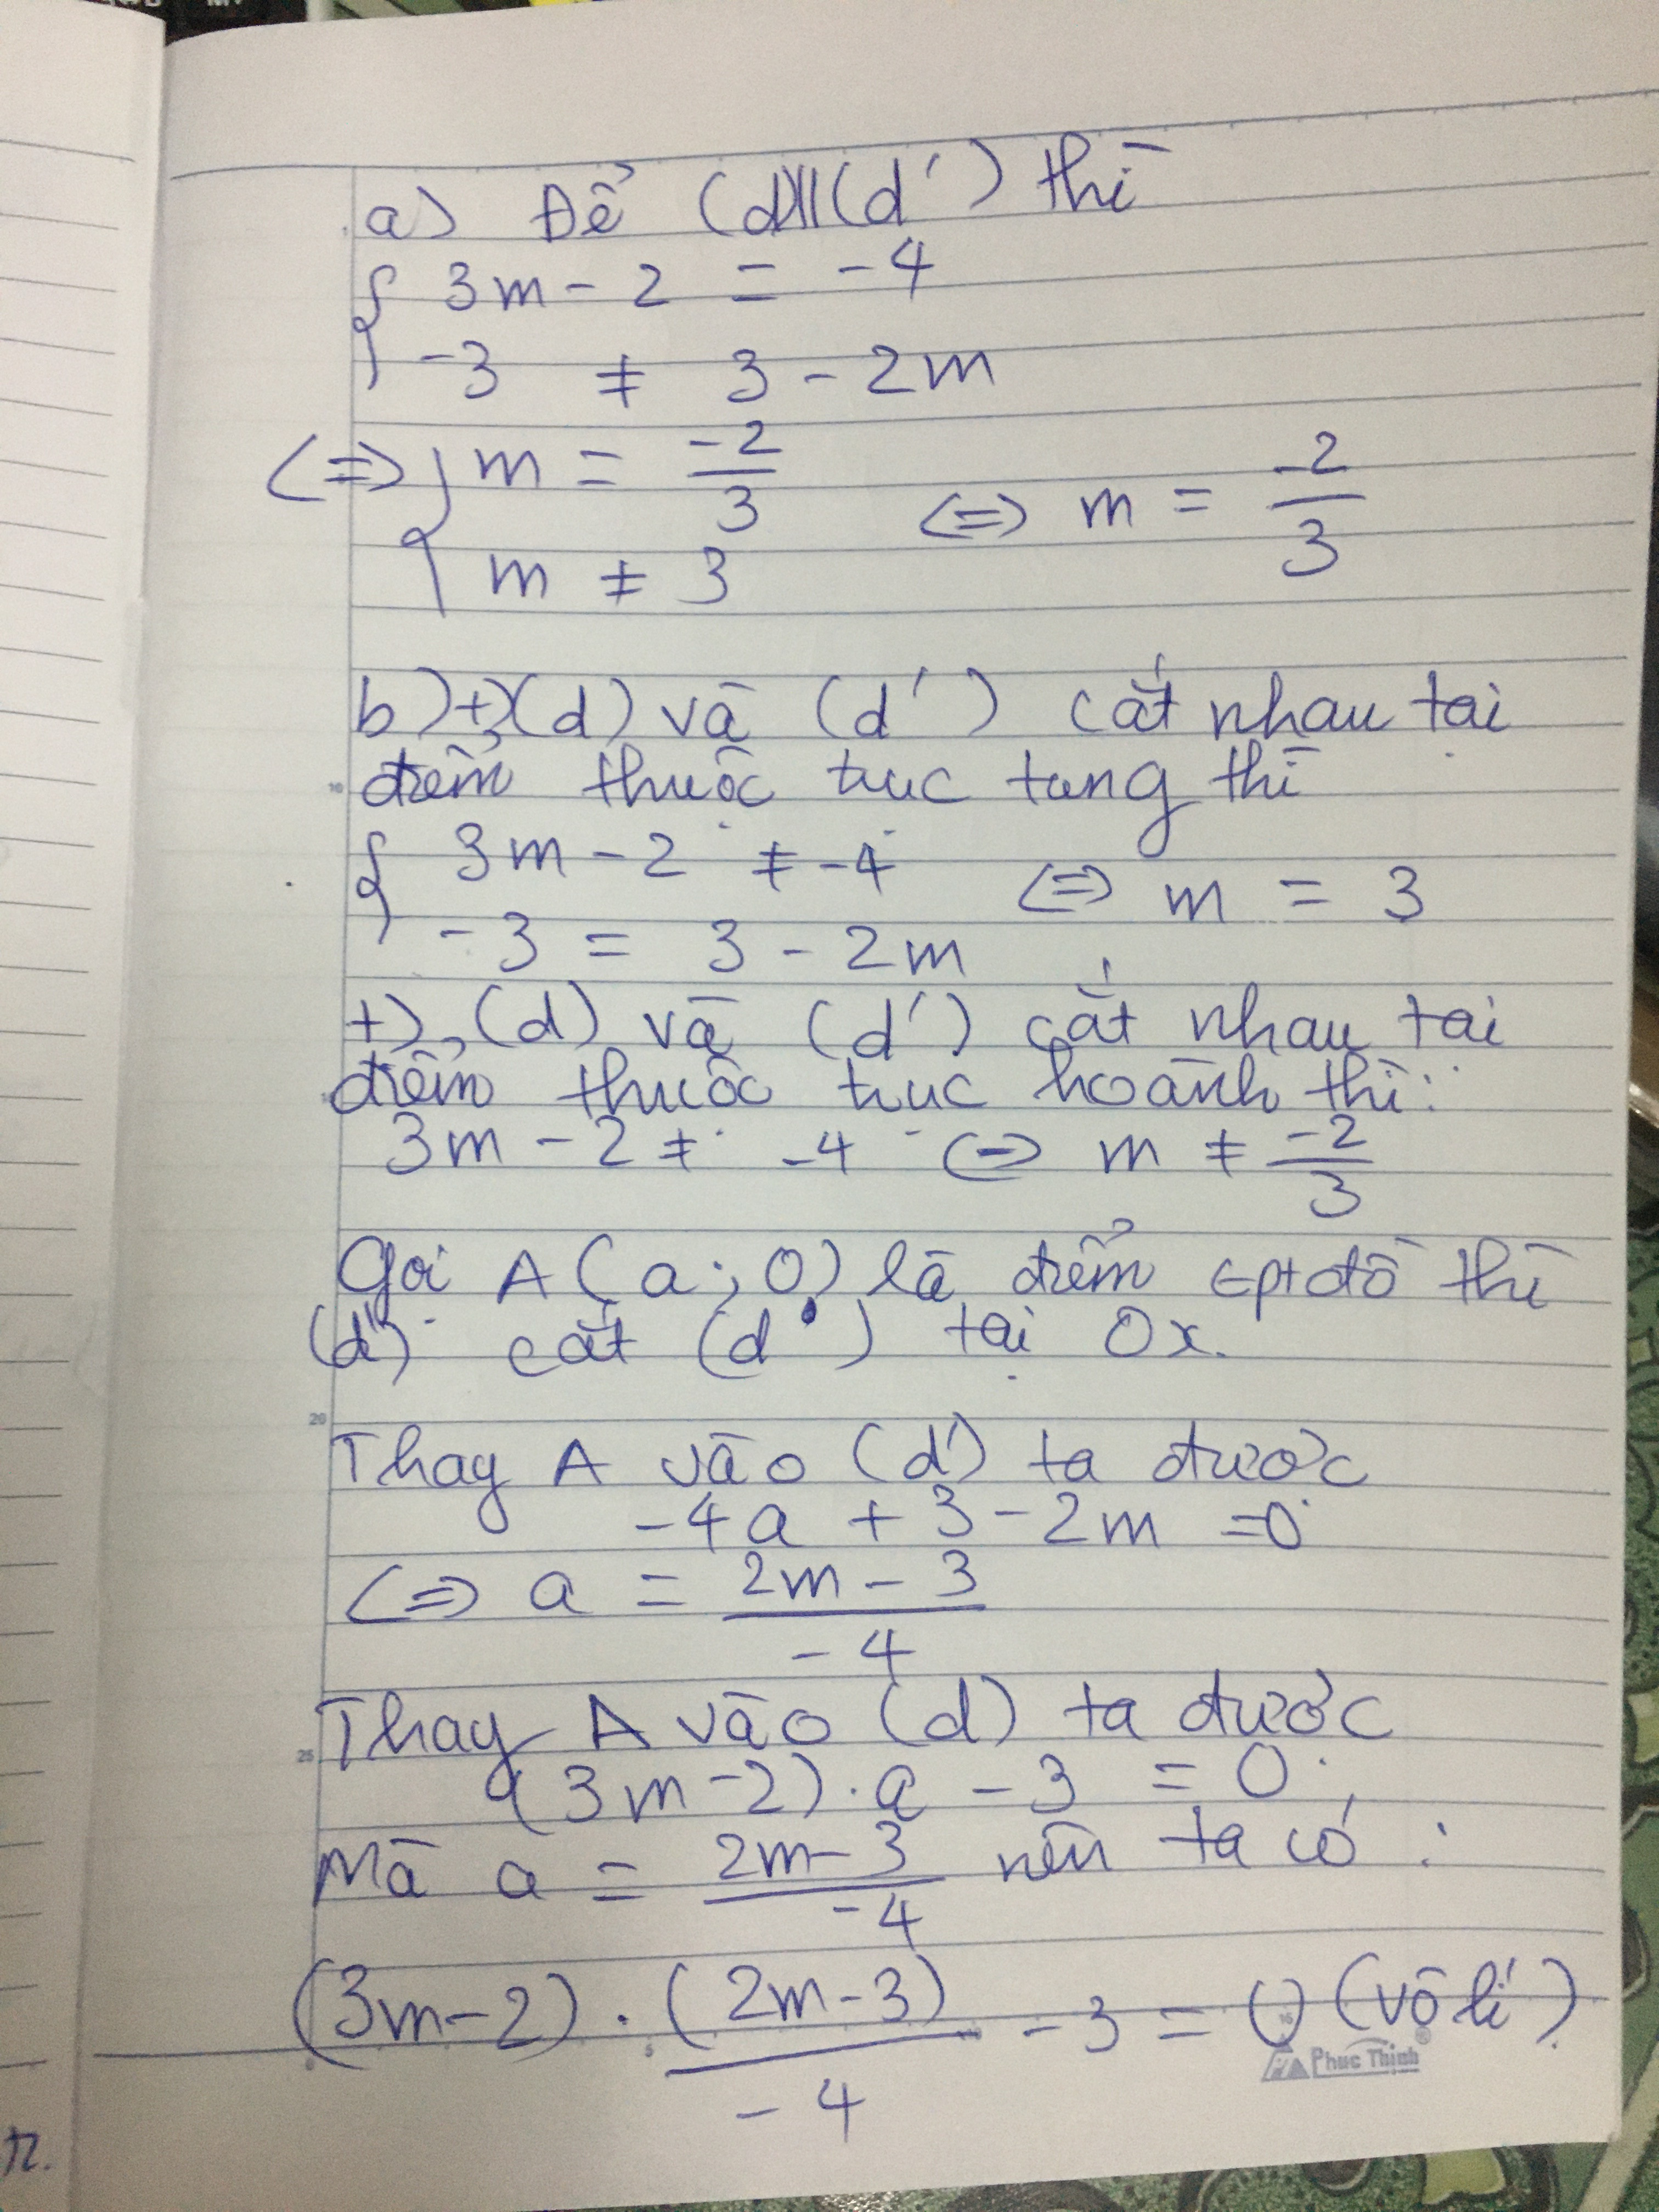 a) Để (d)//(d') thì
3m - 2 = -4
-3 ≠ 3 - 2m
<=> m = -2/3 <=> m = -2/3
m ≠ 3
b) +) (d) và (d') cắt nhau tại
điểm thuộc trục tung thì
3m - 2 ≠ -4 <=> m = 3
-3 = 3 - 2m
+) (d) và (d') cắt nhau tại
10
điểm thuộc trục hoành thì:
3m - 2 ≠ -4 <=> m ≠ -2/3
Gọi A(a; 0) là điểm pt đồ thì
(d) cắt (d') tại Ox.
20
Thay A vào (d') ta được
-4a + 3 - 2m = 0
<=> a = 2m - 3 / -4
Thay A vào (d) ta được
25
(3m - 2).a - 3 = 0
Mà a = 2m - 3 / -4 nên ta có:
(3m - 2) . (2m - 3) / -4 - 3 = 0 (vô lí)
Phuc Thinh